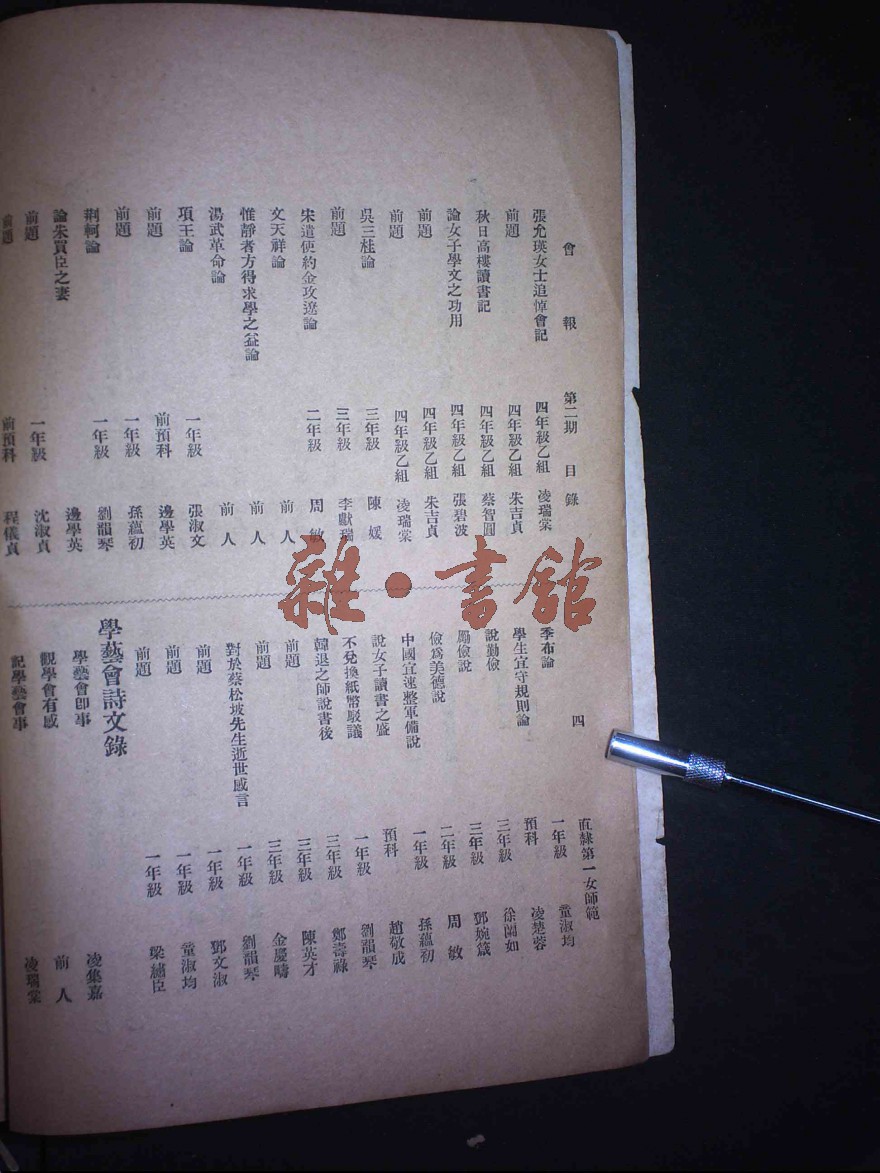 會報 第二期 目錄 四 直隸第一女師範
張允瑛女士追悼會記 四年級乙組 凌瑞棠
前題 四年級乙組 朱吉貞
秋日高樓讀書記 四年級乙組 蔡智圓
論女子學文之功用 四年級乙組 張碧波
前題 四年級乙組 朱吉貞
前題 四年級乙組 凌瑞棠
吳三桂論 三年級 陳媛
前題 三年級 李獻瑞
宋遣使約金攻遼論 二年級 周敏
文天祥論 前人
惟靜者方得求學之益論 前人
湯武革命論 前人
項王論 一年級 張淑文
前題 前預科 邊學英
前題 一年級 孫蘊初
荊柯論 一年級 劉韻琴
論朱買臣之妻 邊學英
前題 一年級 沈淑貞
前題 前預科 程儀貞
季布論 一年級 童淑均
學生宜守規則論 預科 凌楚蓉
說勤儉 三年級 徐闌如
勵儉說 三年級 鄧婉箴
儉爲美德說 二年級 周敏
中國宜速整軍備說 一年級 孫蘊初
說女子讀書之盛 預科 趙敬成
不兌換紙幣駁議 一年級 劉韻琴
韓退之師說書後 三年級 鄭壽祿
前題 三年級 陳英才
前題 三年級 金慶疇
對於蔡松坡先生逝世感言 一年級 劉韻琴
前題 一年級 鄧文淑
前題 一年級 童淑均
前題 一年級 梁繡臣
學藝會詩文錄
學藝會卽事 凌集嘉
觀學會有感 前人
記學藝會事 凌瑞棠
雜·書館